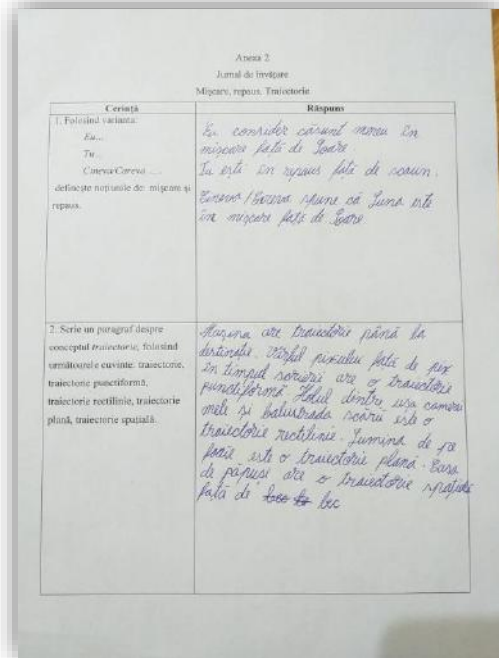 Anexa 2
Jurnal de învățare
Mișcare, repaus. Traiectorie
Cerință
Răspuns
1. Folosind varianta:
Eu...
Tu...
Cineva/Careva ....
definește noțiunile de: mișcare și
repaus.
Eu consider că sunt mereu în
mișcare față de Soare.
Tu ești în repaus față de scaun.
Cineva / Careva spune că Luna este
în mișcare față de Soare.
2. Scrie un paragraf despre
conceptul traiectorie, folosind
următoarele cuvinte: traiectorie,
traiectorie punctiformă,
traiectorie rectilinie, traiectorie
plană, traiectorie spațială.
Mașina are traiectorie până la
destinație. Vârful pixului față de pix
în timpul scrierii are o traiectorie
punctiformă. Holul dintre ușa camerei
mele și balustrada scării este o
traiectorie rectilinie. Lumina de pe
este o traiectorie plană. Casa
de păpuși are o traiectorie spațială
față de loc